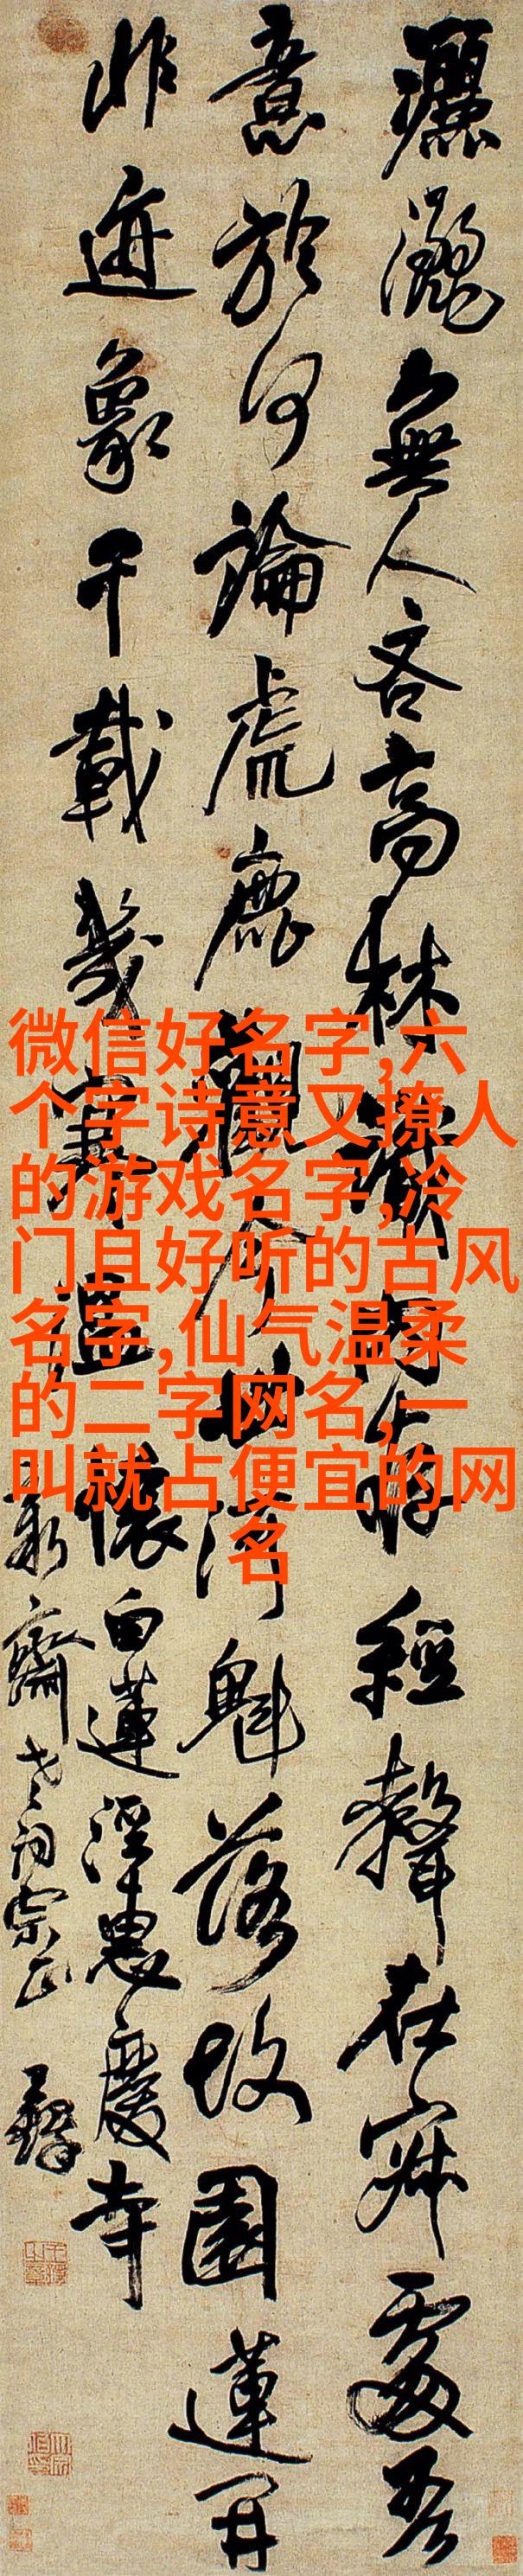 無人吝高林存經聲在寂處吾
意於何論虎鹿觀世魁落故園蓮開
非迹象千載幾寒溫懷白蓮涇惠慶寺
齋老詞宗正鐸
微信好名字,六
个字诗意又撩人
的游戏名字,冷
门且好听的古风
名字,仙气温柔
的二字网名,一
叫就占便宜的网
名